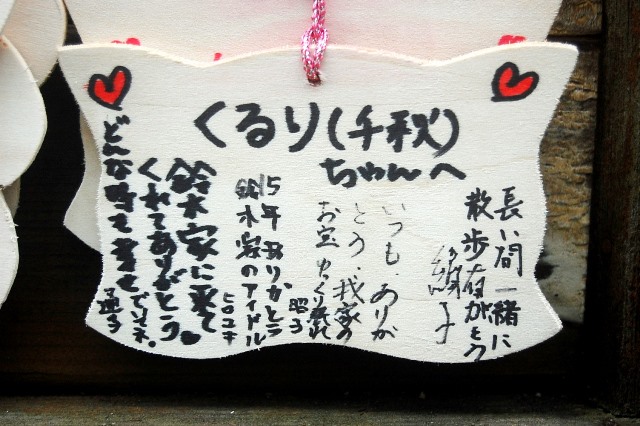 くるり(千秋)
ちゃんへ
長い間一緒に
散歩ありがとう
綾子
いつも、ありが
とう、我家の
お宝ゆっくり
昭子
15年ありがとう
鈴木家のアイドル
ヒロユキ
鈴木家に来て
くれてありがとう。
どんな時も幸せでした。